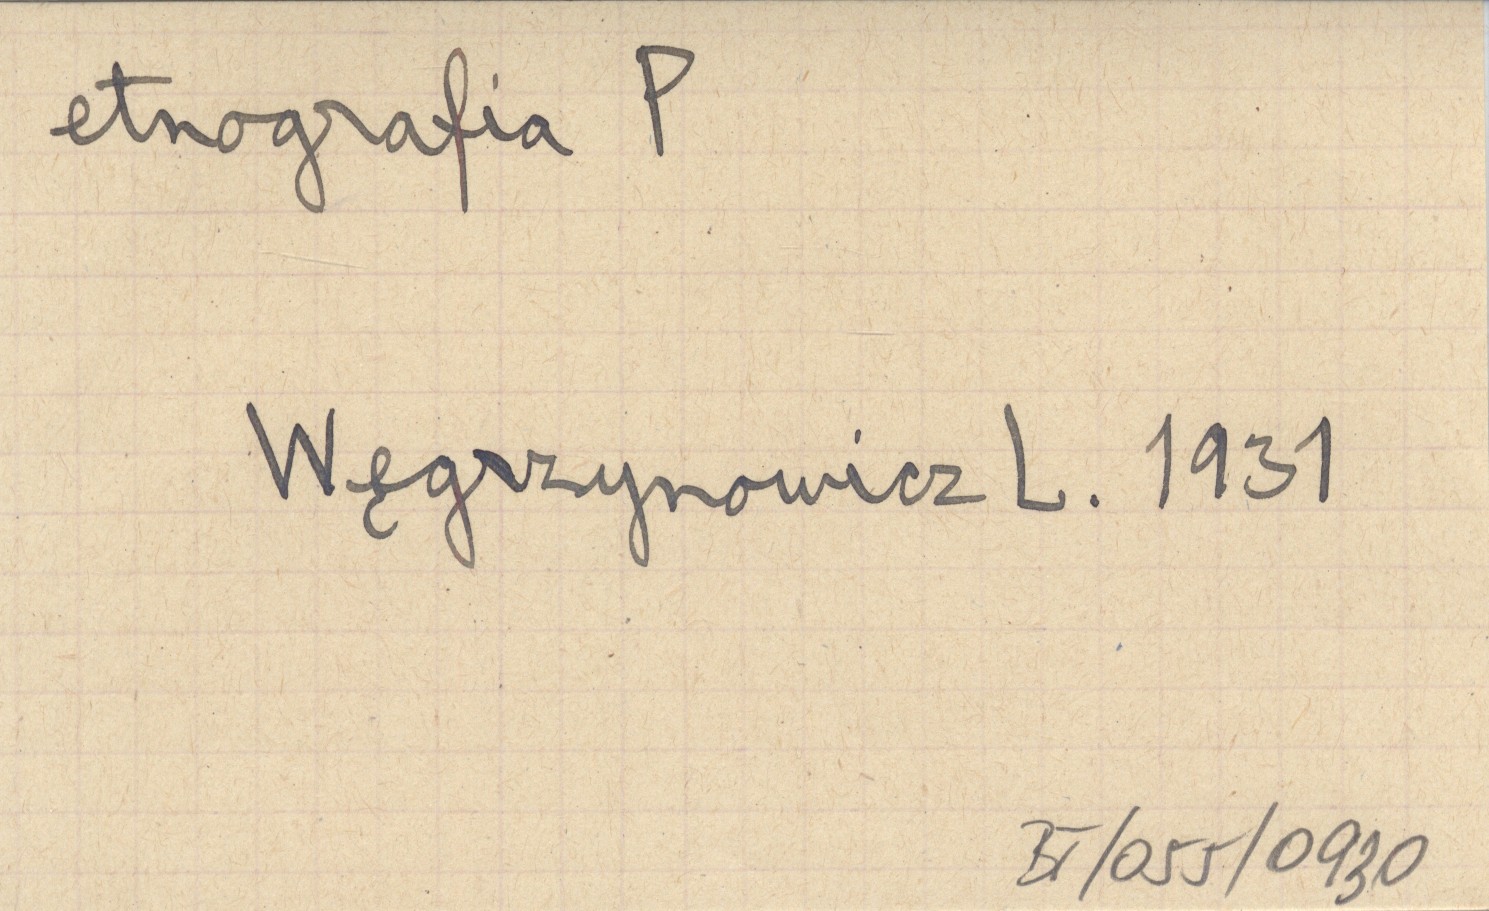 etnografia P
Węgrzynowicz L. 1931
BI/055/0930